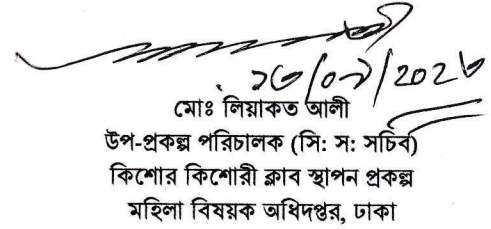 মোঃ লিয়াকত আলী
উপ-প্রকল্প পরিচালক (সি: স: সচিব)
কিশোর কিশোরী ক্লাব স্থাপন প্রকল্প
মহিলা বিষয়ক অধিদপ্তর, ঢাকা